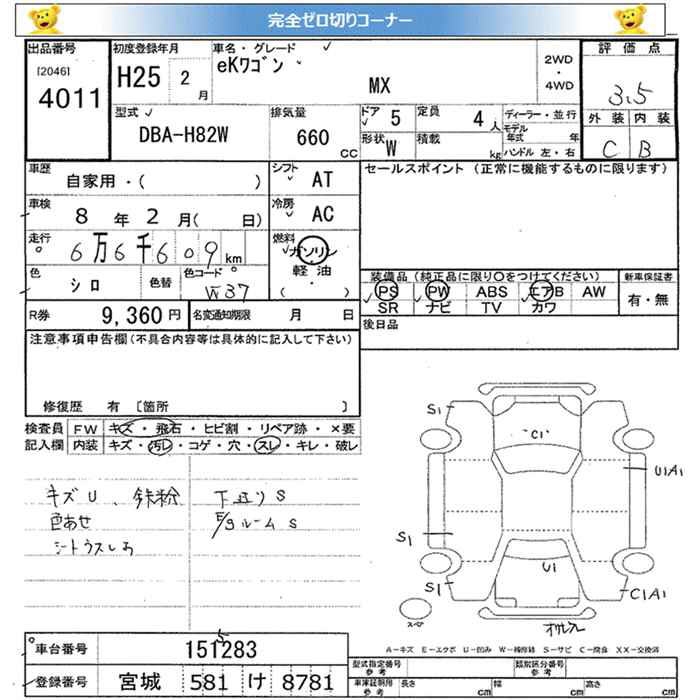 完全ゼロ切りコーナー
出品番号
[2046]
4011
初度登録年月
H25 2 月
車名・グレード
eKワゴン
MX
2WD
・
4WD
評価点
3.5
外装 内装
C B
型式
DBA-H82W
排気量
660 CC
ドア 5
形状 W
定員 4 人
積載 kg
ディーラー・並行
モデル年式 年
ハンドル 左・右
車歴
自家用・( )
シフト AT
車検
8 年 2 月( 日)
冷房 AC
走行
6万6千609 km
燃料 ガソリン
軽油
( ・ )
色 シロ 色替
色コード W37
R券 9,360 円
名変通知期限 月 日
セールスポイント (正常に機能するものに限ります)
装備品 (純正品に限り〇をつけてください)
PS PW ABS エアB AW
SR ナビ TV カワ
新車保証書
有・無
後日品
注意事項申告欄(不具合内容等は具体的に記入して下さい)
修復歴 有 [箇所 ]
検査員記入欄
FW キズ・飛石・ヒビ割・リペア跡・×要
内装 キズ・汚レ・コゲ・穴・スレ・キレ・破レ
キズU、鉄粉
色あせ
シートウスしみ
下廻りS
E/gルームS
S1
C1
U1A1
S1
U1
S1
C1A1
スペア
A－キズ E－エクボ U－凹み W－補修跡 S－サビ C－腐食 XX－交換済
車台番号
151283
5
登録番号
宮城 581 け 8781
型式指定番号 参考
類別区分番号 参考
車庫証明用 参考 長さ cm 幅 cm 高さ cm